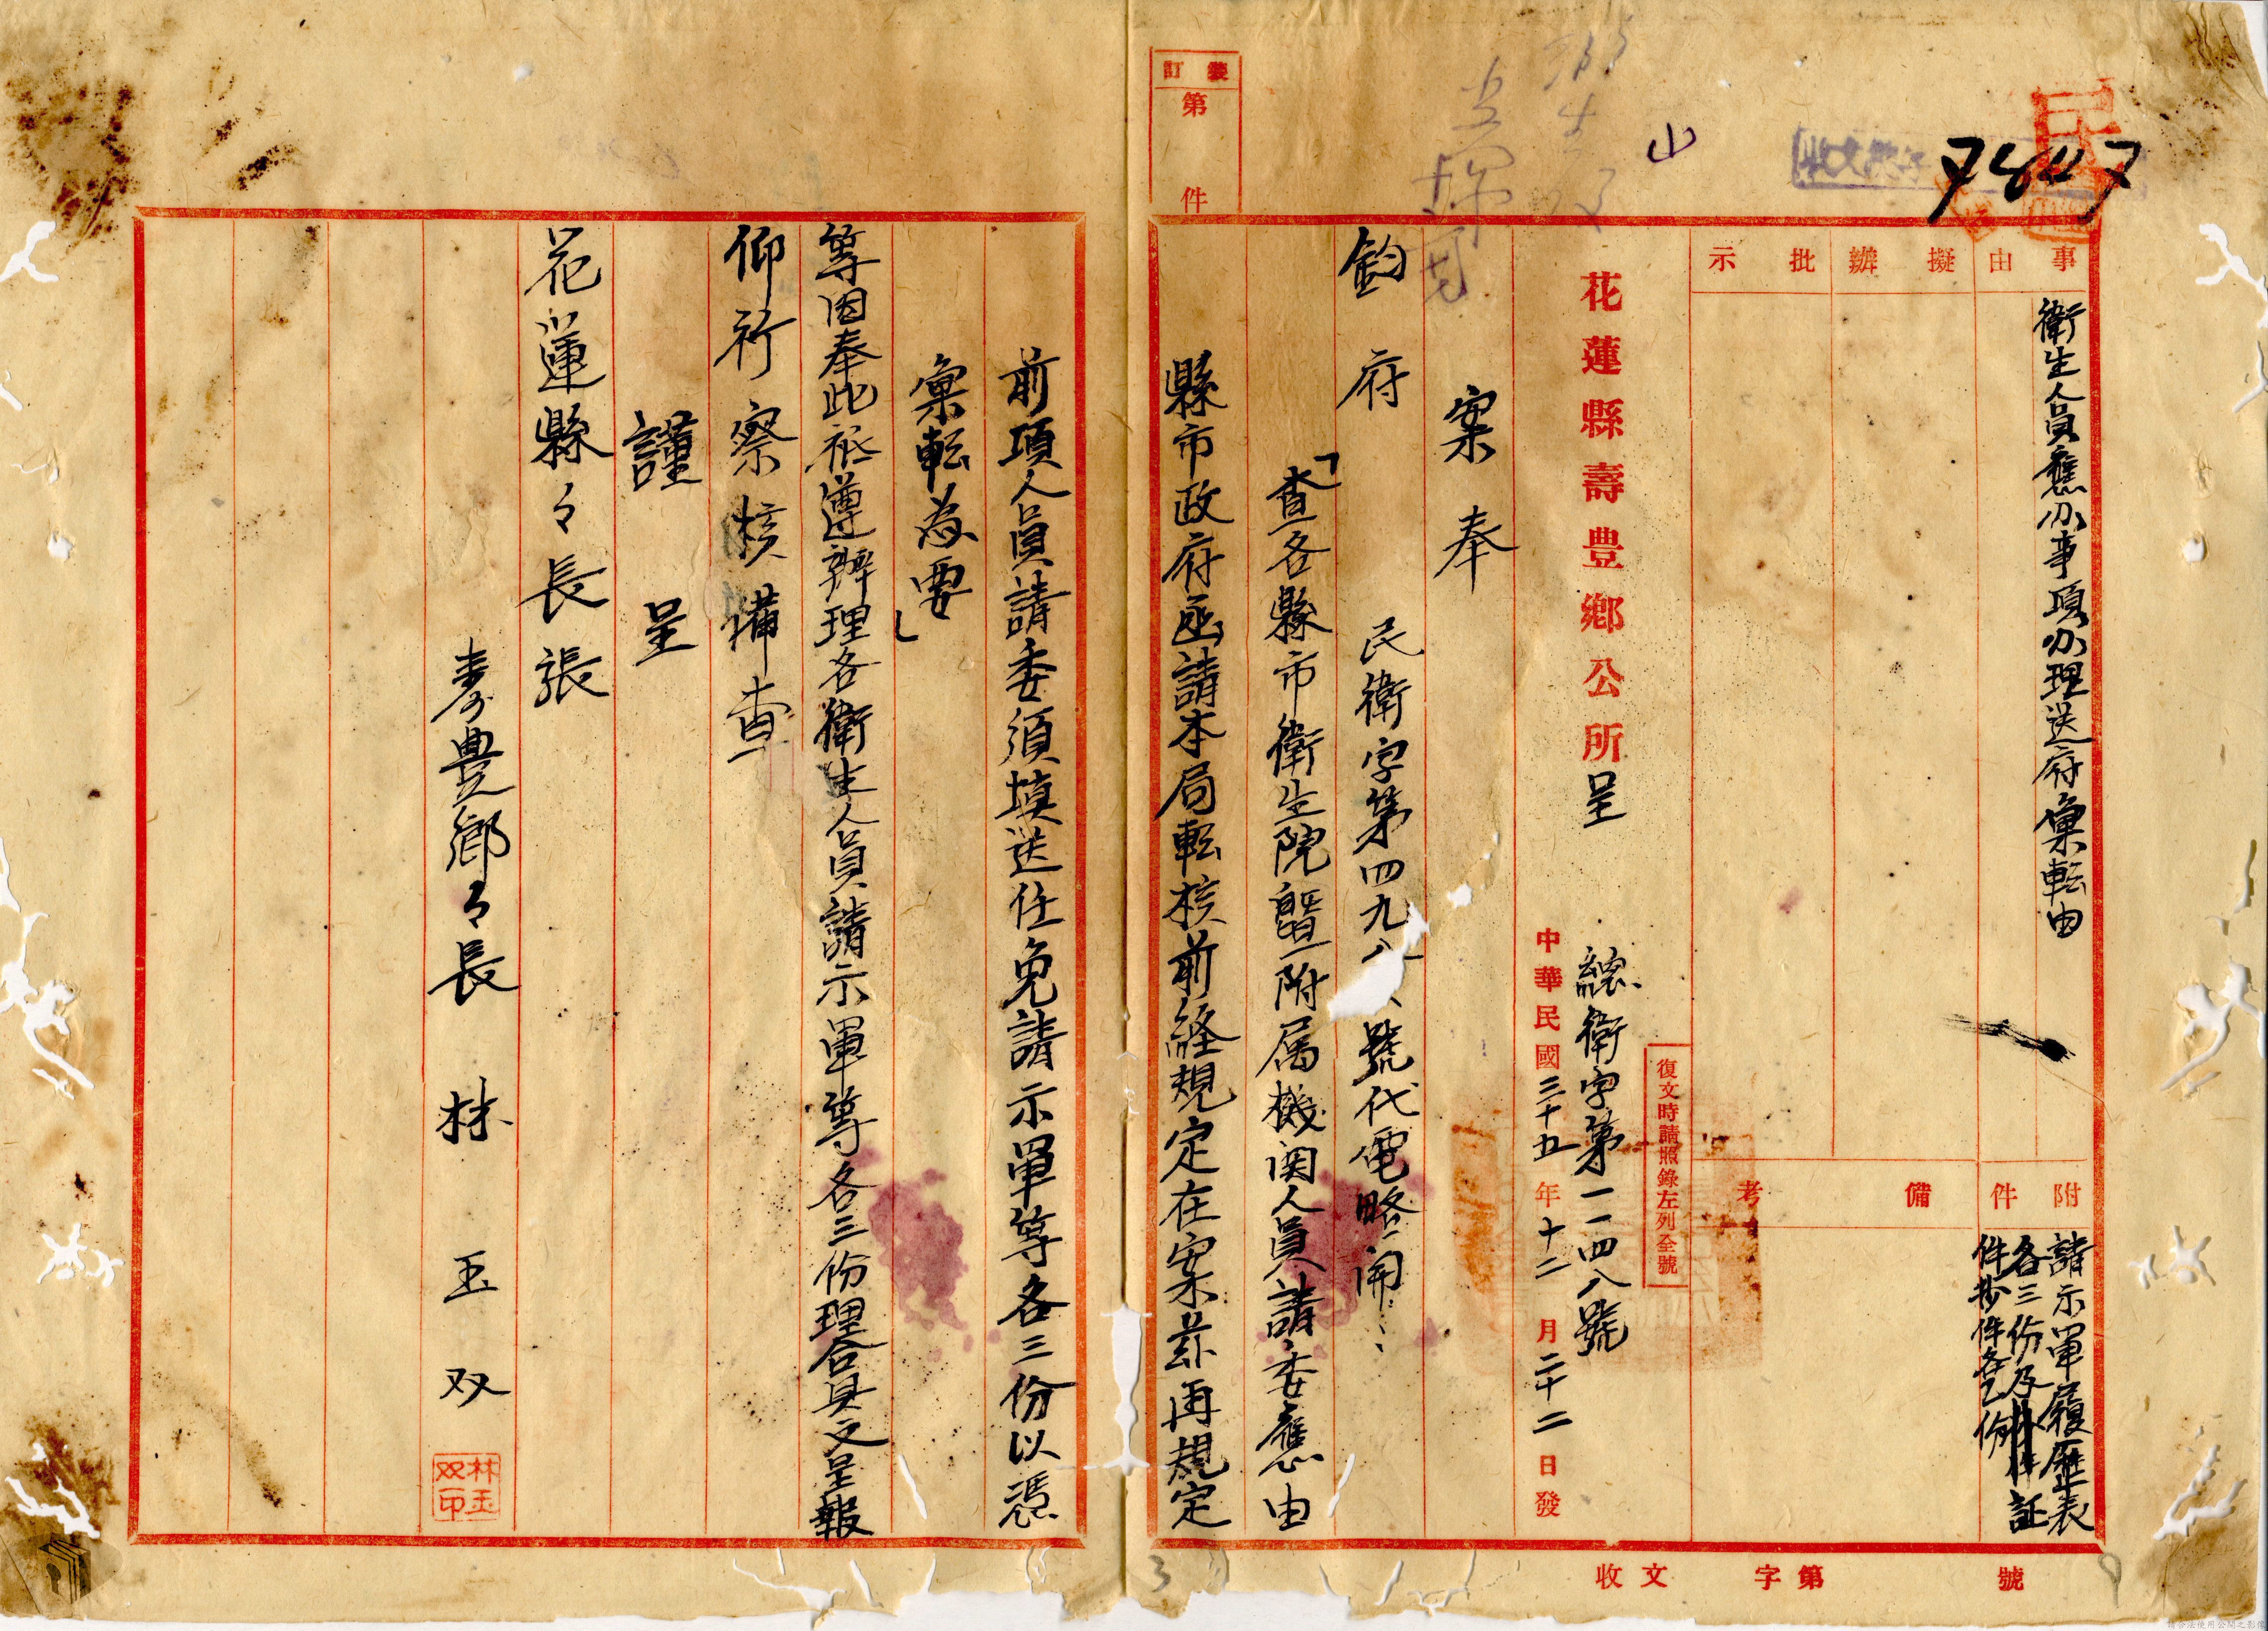 民
收文
裝訂
第 件
山
事由
擬辦
批示
衛生人員應办事項办理送府彙転由
附件
請示單履歷表
各三份及証
件抄件各乙份
備考
復文時請照錄左列全號
花蓮縣壽豊鄉公所呈
總衛字第一一四八號
中華民國三十五年十二月二十二日發
案奉
鈞府 民衛字第四九八號代電略開:
「查各縣市衛生院暨附属機関人員請委應由
縣市政府函請本局転核前経規定在案茲再規定
前項人員請委須填送任免請示單等各三份以憑
彙転為要」
等因奉此祗遵辦理各衛生人員請示單等各三份理合具文呈報
仰祈察核備查
謹呈
花蓮縣々長張
寿豊鄉々長 林玉双
林玉双印
收文 字第 號
3